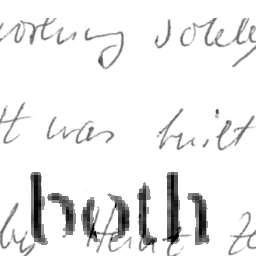 working solely
It was built
both
by Heinz